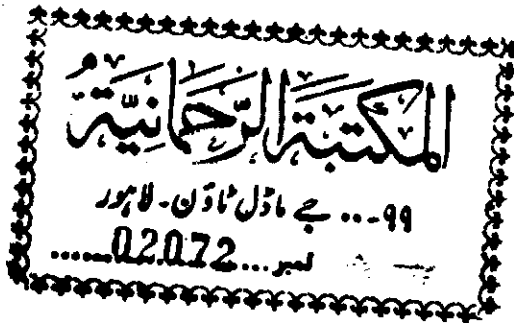 المكتبة الرحمانية
۹۹... جے ماڈل ٹاؤن۔ لاہور
نمبر...02072......